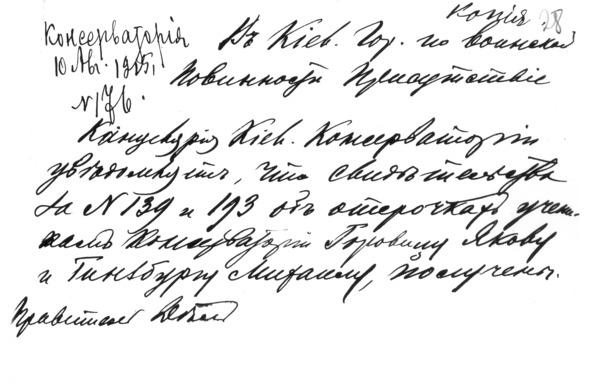 Копія. 28
Консерваторія
10 Авг. 1915,
N 176.
Въ Кіев. Гор. по воинской
Повинности Присутствіе
Канцелярія Кіев. Консерваторіи
увѣдомляетъ, что свидѣтельства
за N 139 и 193 объ отсрочкахъ учени-
камъ Консерваторіи Горовицу Якову
и Гинзбургу Михаилу, получены.
Правитель Дѣлъ